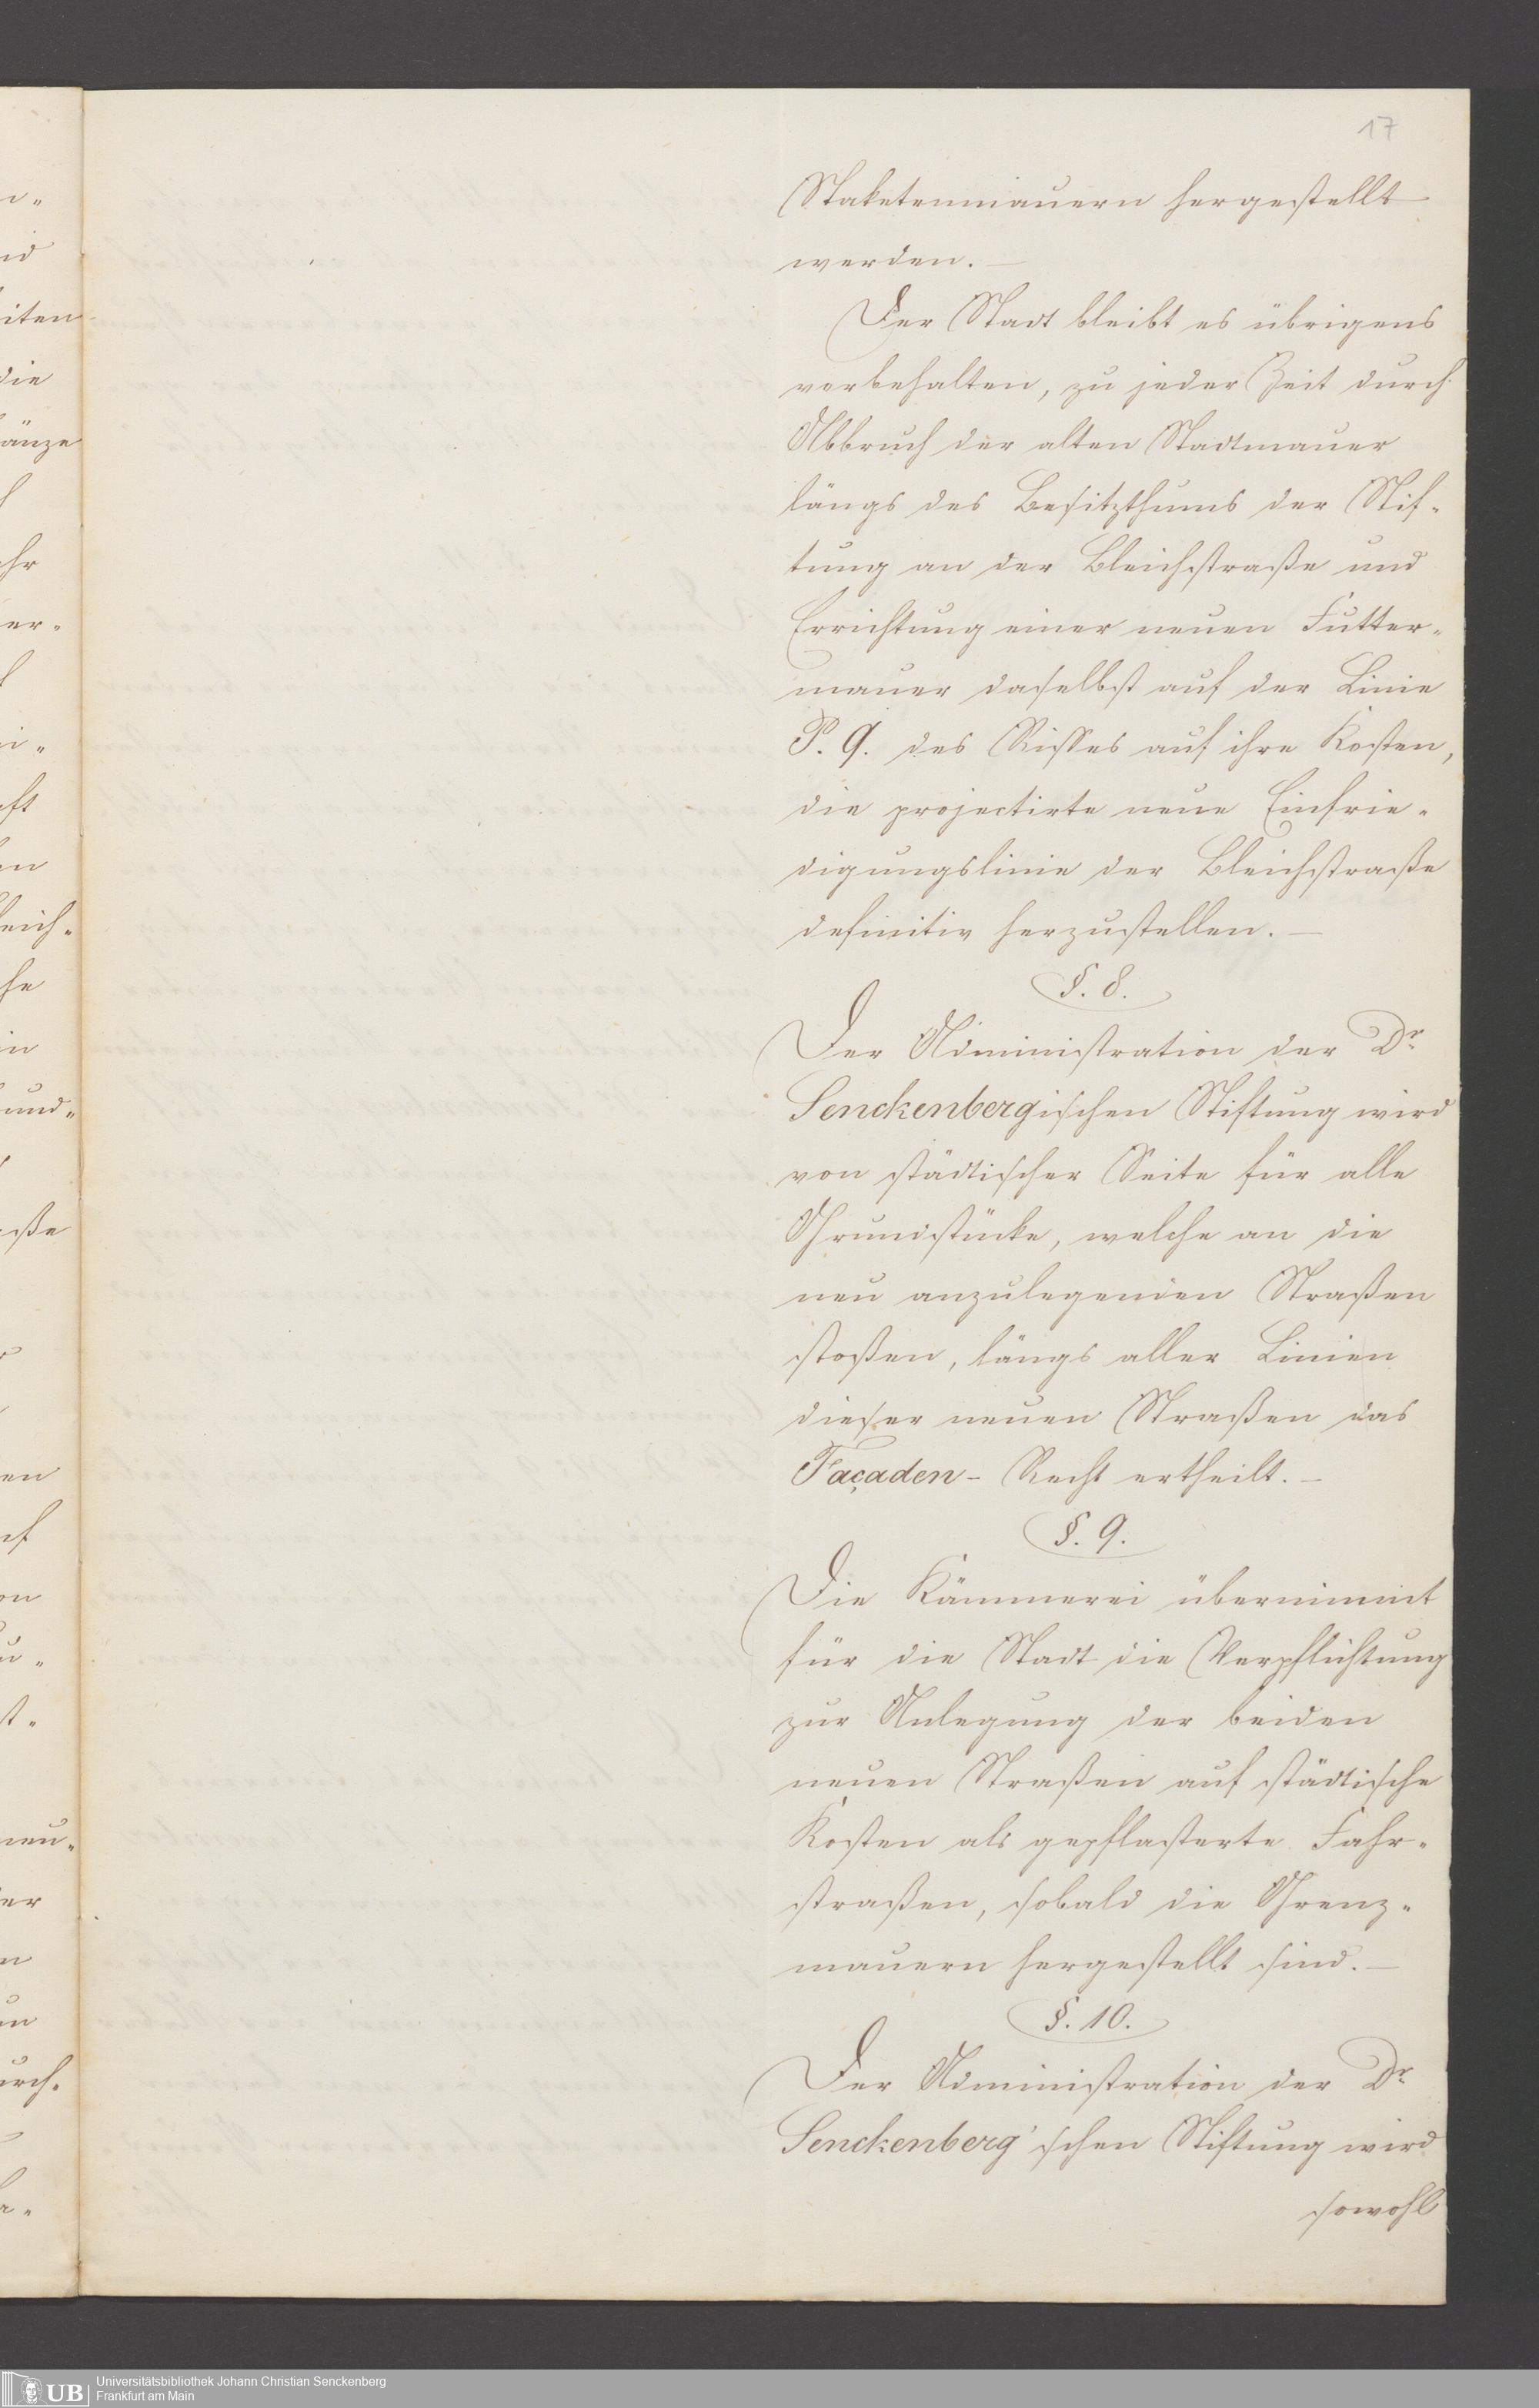 17
Staketenmauern hergestellt
werden. —
Der Stadt bleibt es übrigens
vorbehalten, zu jeder Zeit durch
Abbruch der alten Stadtmauer
längs des Besitzthums der Stif-
tung an der Bleichstraße und
Errichtung einer neuen Futter-
mauer daselbst auf der Linie
P. q. des Risses auf ihre Kosten,
die projectirte neue Einfrie-
digungslinie der Bleichstraße
definitiv herzustellen. —
§. 8.
Der Administration der Dr.
Senckenbergischen Stiftung wird
von städtischer Seite für alle
Grundstücke, welche an die
neu anzulegenden Straßen
stoßen, längs aller Linien
dieser neuen Straßen das
Façaden- Recht ertheilt. —
§. 9.
Die Kämmerei übernimmt
für die Stadt die Verpflichtung
zur Anlegung der beiden
neuen Straßen auf städtische
Kosten als gepflasterte Fahr-
straßen, sobald die Grenz-
mauern hergestellt sind. —
§. 10.
Der Administration der Dr.
Senckenberg'schen Stiftung wird
sowohl
UB
Universitätsbibliothek Johann Christian Senckenberg
Frankfurt am Main